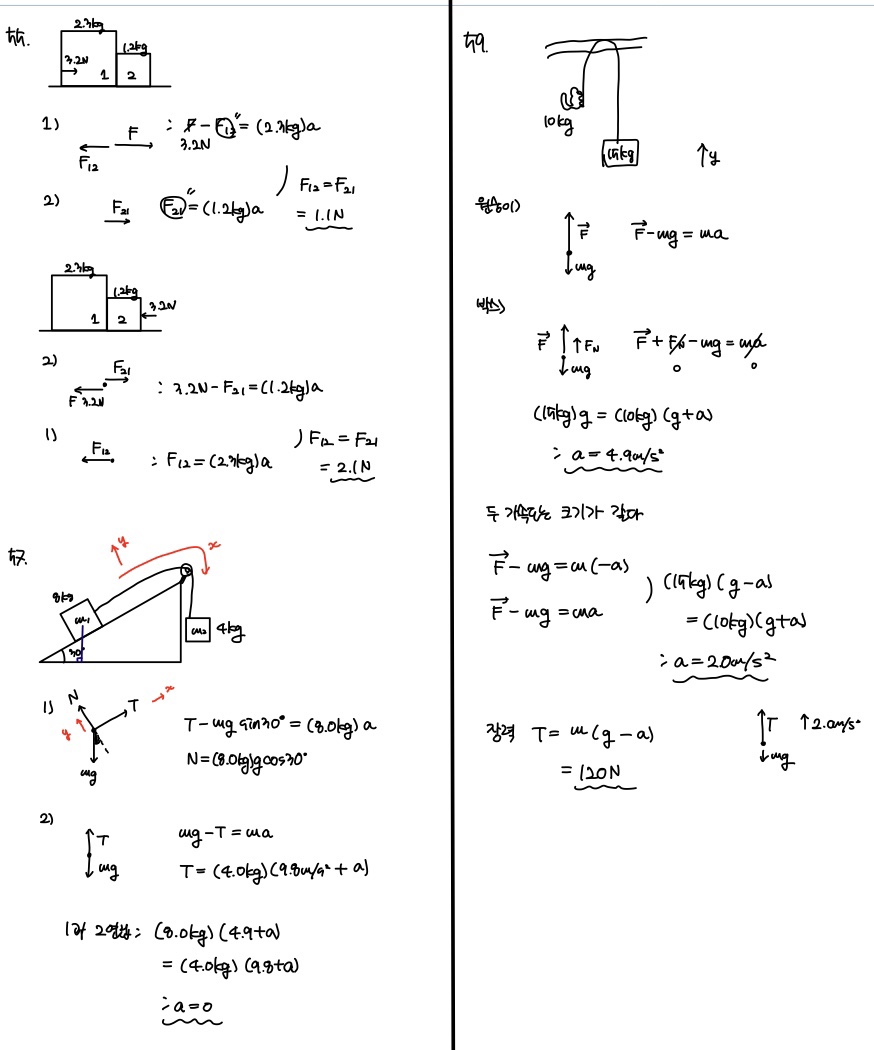 55.
2.3kg
1.2kg
3.2N
1
2
1)
F
F₁₂
∴ F - F₁₂ = (2.3kg)a
3.2N
2)
F₂₁
F₂₁ = (1.2kg)a
F₁₂ = F₂₁
= 1.1N
2.3kg
1.2kg
3.2N
1
2
2)
F₂₁
F 3.2N
∴ 3.2N - F₂₁ = (1.2kg)a
1)
F₁₂
∴ F₁₂ = (2.3kg)a
F₁₂ = F₂₁
= 2.1N
57.
y
x
8kg
m₁
30°
m₂
4kg
1)
N
T
x
y
mg
T - mg sin30° = (8.0kg) a
N = (8.0kg)g cos30°
2)
T
mg
mg - T = ma
T = (4.0kg)(9.8m/s² + a)
1과 2연립 : (8.0kg) (4.9+a)
= (4.0kg) (9.8+a)
∴ a = 0
59.
10kg
15kg
↑y
원숭이)
F⃗
mg
F⃗ - mg = ma
박스)
F⃗
↑F_N
mg
F⃗ + F_N - mg = ma
0
0
(15kg)g = (10kg)(g+a)
∴ a = 4.9m/s²
두 가속도는 크기가 같다
F⃗ - mg = m(-a)
F⃗ - mg = ma
(15kg)(g-a)
= (10kg)(g+a)
∴ a = 2.0m/s²
장력 T = m(g-a)
= 120N
T
↑2.0m/s²
mg